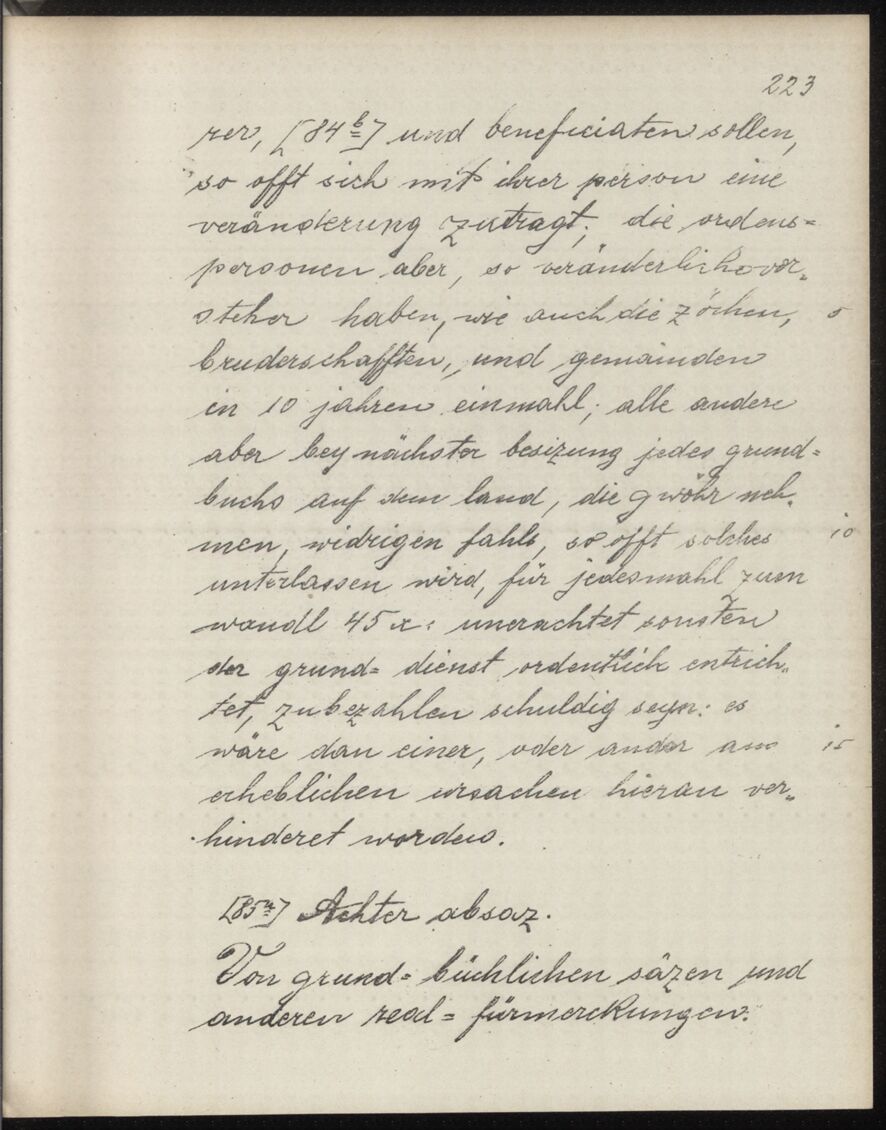 223
rer, [84b] und beneficiaten sollen,
so offt sich mit ihrer person eine
veränderung zutragt; die ordens=
personen aber, so veränderliche vor„
steher haben, wie auch die zöchen, 5
bruderschafften, und gemainden
in 10 jahren einmahl; alle andere
aber bey nächster besizung jedes grund=
buchs auf dem land, die gwöhr neh„
men, widrigen fahls, so offt solches 10
unterlassen wird, für jedesmahl zum
wandl 45 x: unerachtet sonsten
der grund= dienst ordentlich entrich„
tet, zubezahlen schuldig seyn: es
wäre dan einer, oder ander aus 15
erheblichen ursachen hieran ver„
hinderet worden.
[85a] Achter absaz.
Von grund= büchlichen säzen und
anderen real= fürmerckungen.